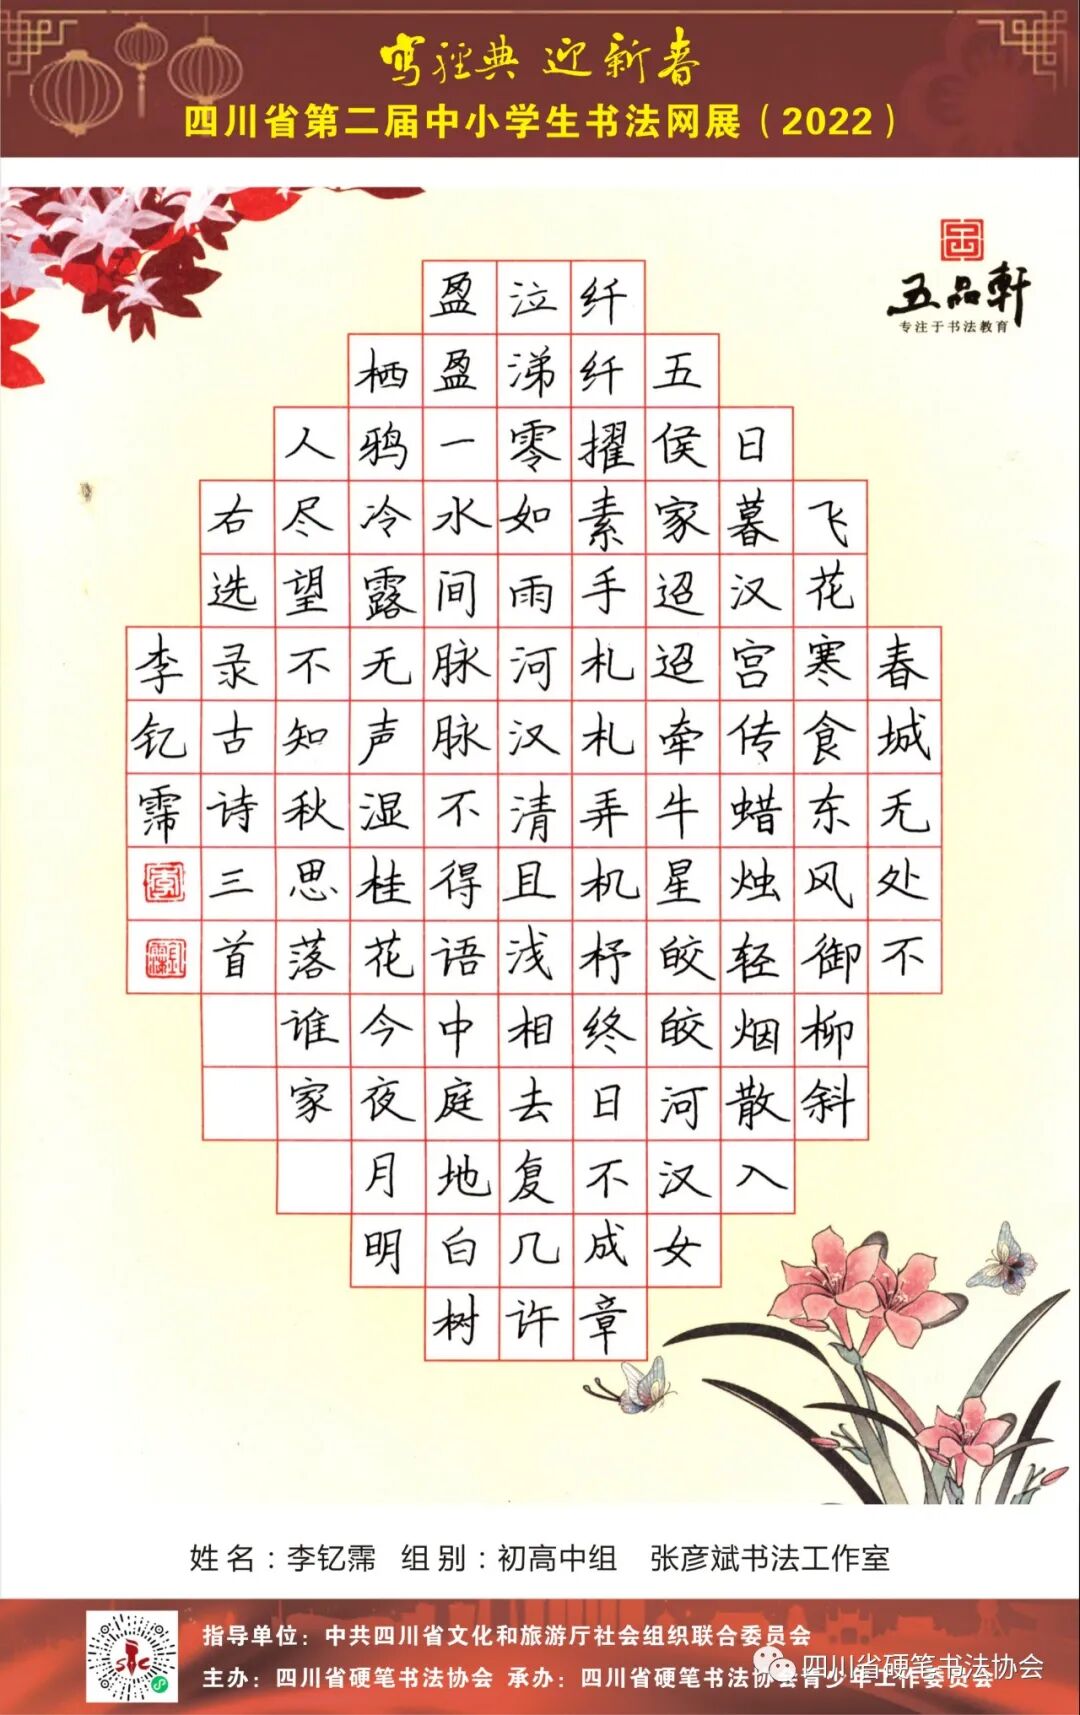 写经典 迎新春
四川省第二届中小学生书法网展（2022）
五品轩
专注于书法教育
春城无处不
飞花寒食东风御柳斜
日暮汉宫传蜡烛轻烟散入
五侯家迢迢牵牛星皎皎河汉女
纤纤擢素手札札弄机杼终日不成章
泣涕零如雨河汉清且浅相去复几许
盈盈一水间脉脉不得语中庭地白树
栖鸦冷露无声湿桂花今夜月明
人尽望不知秋思落谁家
右选录古诗三首
李钇霈
姓名：李钇霈 组别：初高中组 张彦斌书法工作室
指导单位：中共四川省文化和旅游厅社会组织联合委员会
主办：四川省硬笔书法协会 承办：四川省硬笔书法协会青少年工作委员会
四川省硬笔书法协会